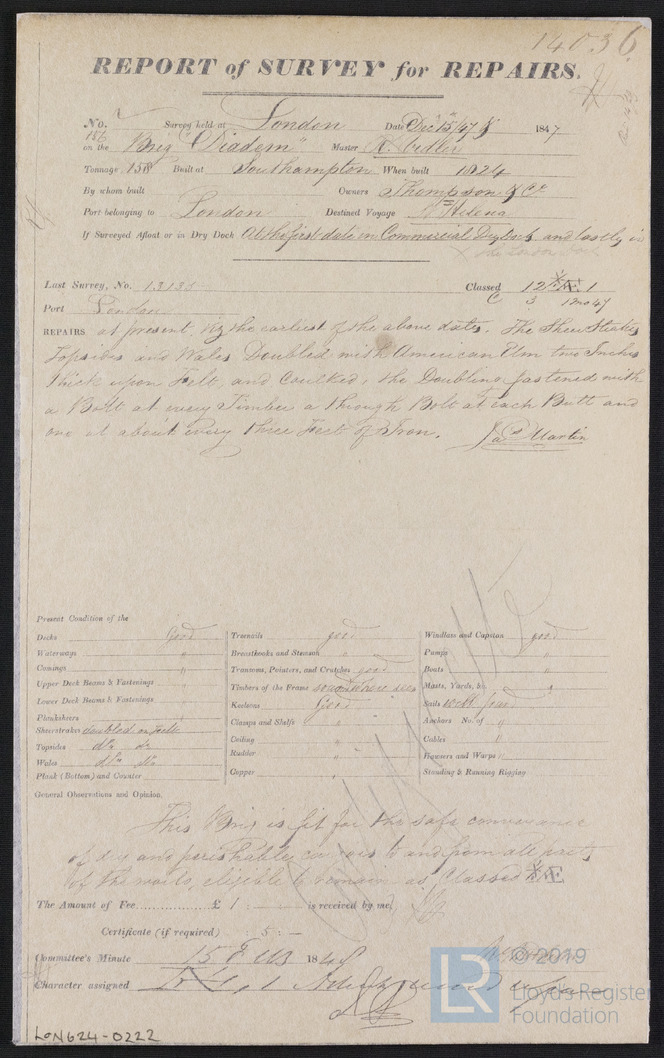 14036
REPORT of SURVEY for REPAIRS.
No. 156 Survey held at London Date Dec 15/47 & 1847
on the Brig "Diadem" Master
Tonnage 158 Built at Southampton When built 1824
By whom built Owners Thompson & Co
Port belonging to London Destined Voyage St Helena
If Surveyed Afloat or in Dry Dock At the first date in Commercial Dry Dock and lastly in
the London Dock
Last Survey, No. Classed 12 Æ 1
Port London 3 1 mo 47
REPAIRS at present, viz the earliest of the above dates. The Sheer Strakes
Topsides and Wales Doubled with American Elm two Inches
thick upon Felt, and Caulked, the Doubling fastened with
a Bolt at every Timber a through Bolt at each Butt and
one at about every three Feet of Iron. Jas Martin
Present Condition of the
Decks Good
Waterways "
Comings "
Upper Deck Beams & Fastenings "
Lower Deck Beams & Fastenings "
Planksheers "
Sheerstrakes doubled on felt
Topsides do do
Wales do do
Plank (Bottom) and Counter
Treenails good
Breasthooks and Stemson "
Transoms, Pointers, and Crutches good
Timbers of the Frame sound where seen
Keelsons Good
Clamps and Shelfs "
Ceiling "
Rudder "
Copper "
Windlass and Capstan good
Pumps "
Boats "
Masts, Yards, &c. "
Sails well found
Anchors No. of "
Cables "
Hawsers and Warps "
Standing & Running Rigging
General Observations and Opinion.
This Brig is fit for the safe conveyance
of dry and perishable cargoes to and from all parts
of the world, eligible to remain as Classed Æ
The Amount of Fee £ 1 : - : - is received by me,
Certificate (if required) : 5 : -
Committee's Minute 15 Feb 1848
Character assigned
LON624-0222
LR © 2019
Lloyd's Register
Foundation